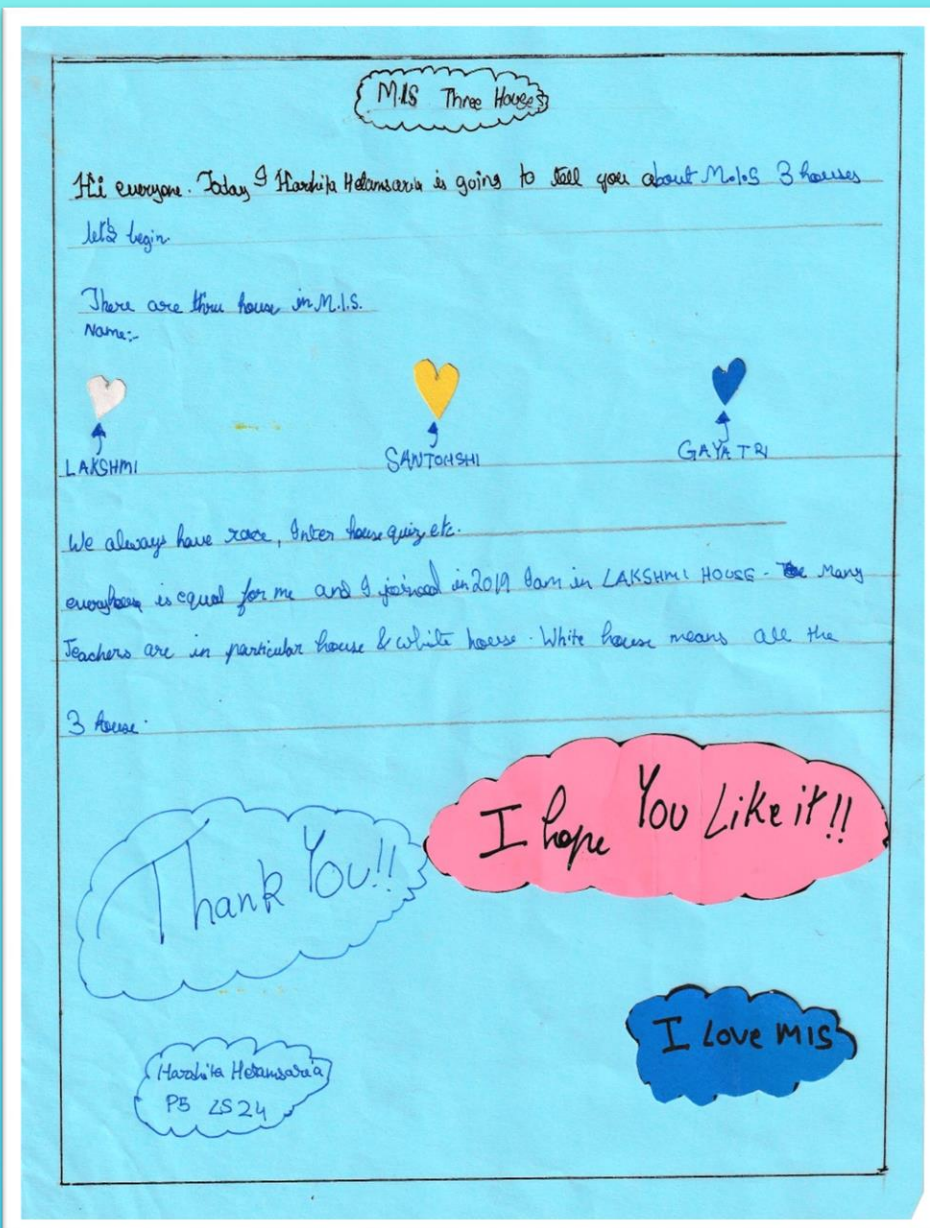 M.I.S Three Houses
Hi everyone. Today I Harshita Helamsaria is going to tell you about M.I.S 3 houses
let's begin
There are three house in M.I.S.
Name:-
LAKSHMI SANTOHSHI GAYATRI
We always have race, Inter house quiz etc.
is equal for me and I joined in 2019 I am in LAKSHMI HOUSE - Many
Teachers are in particular house & white house. White house means all the
3 house.
I hope You Like it!!
Thank You!!
I Love MIS
Harshita Helamsaria
P5 LS24